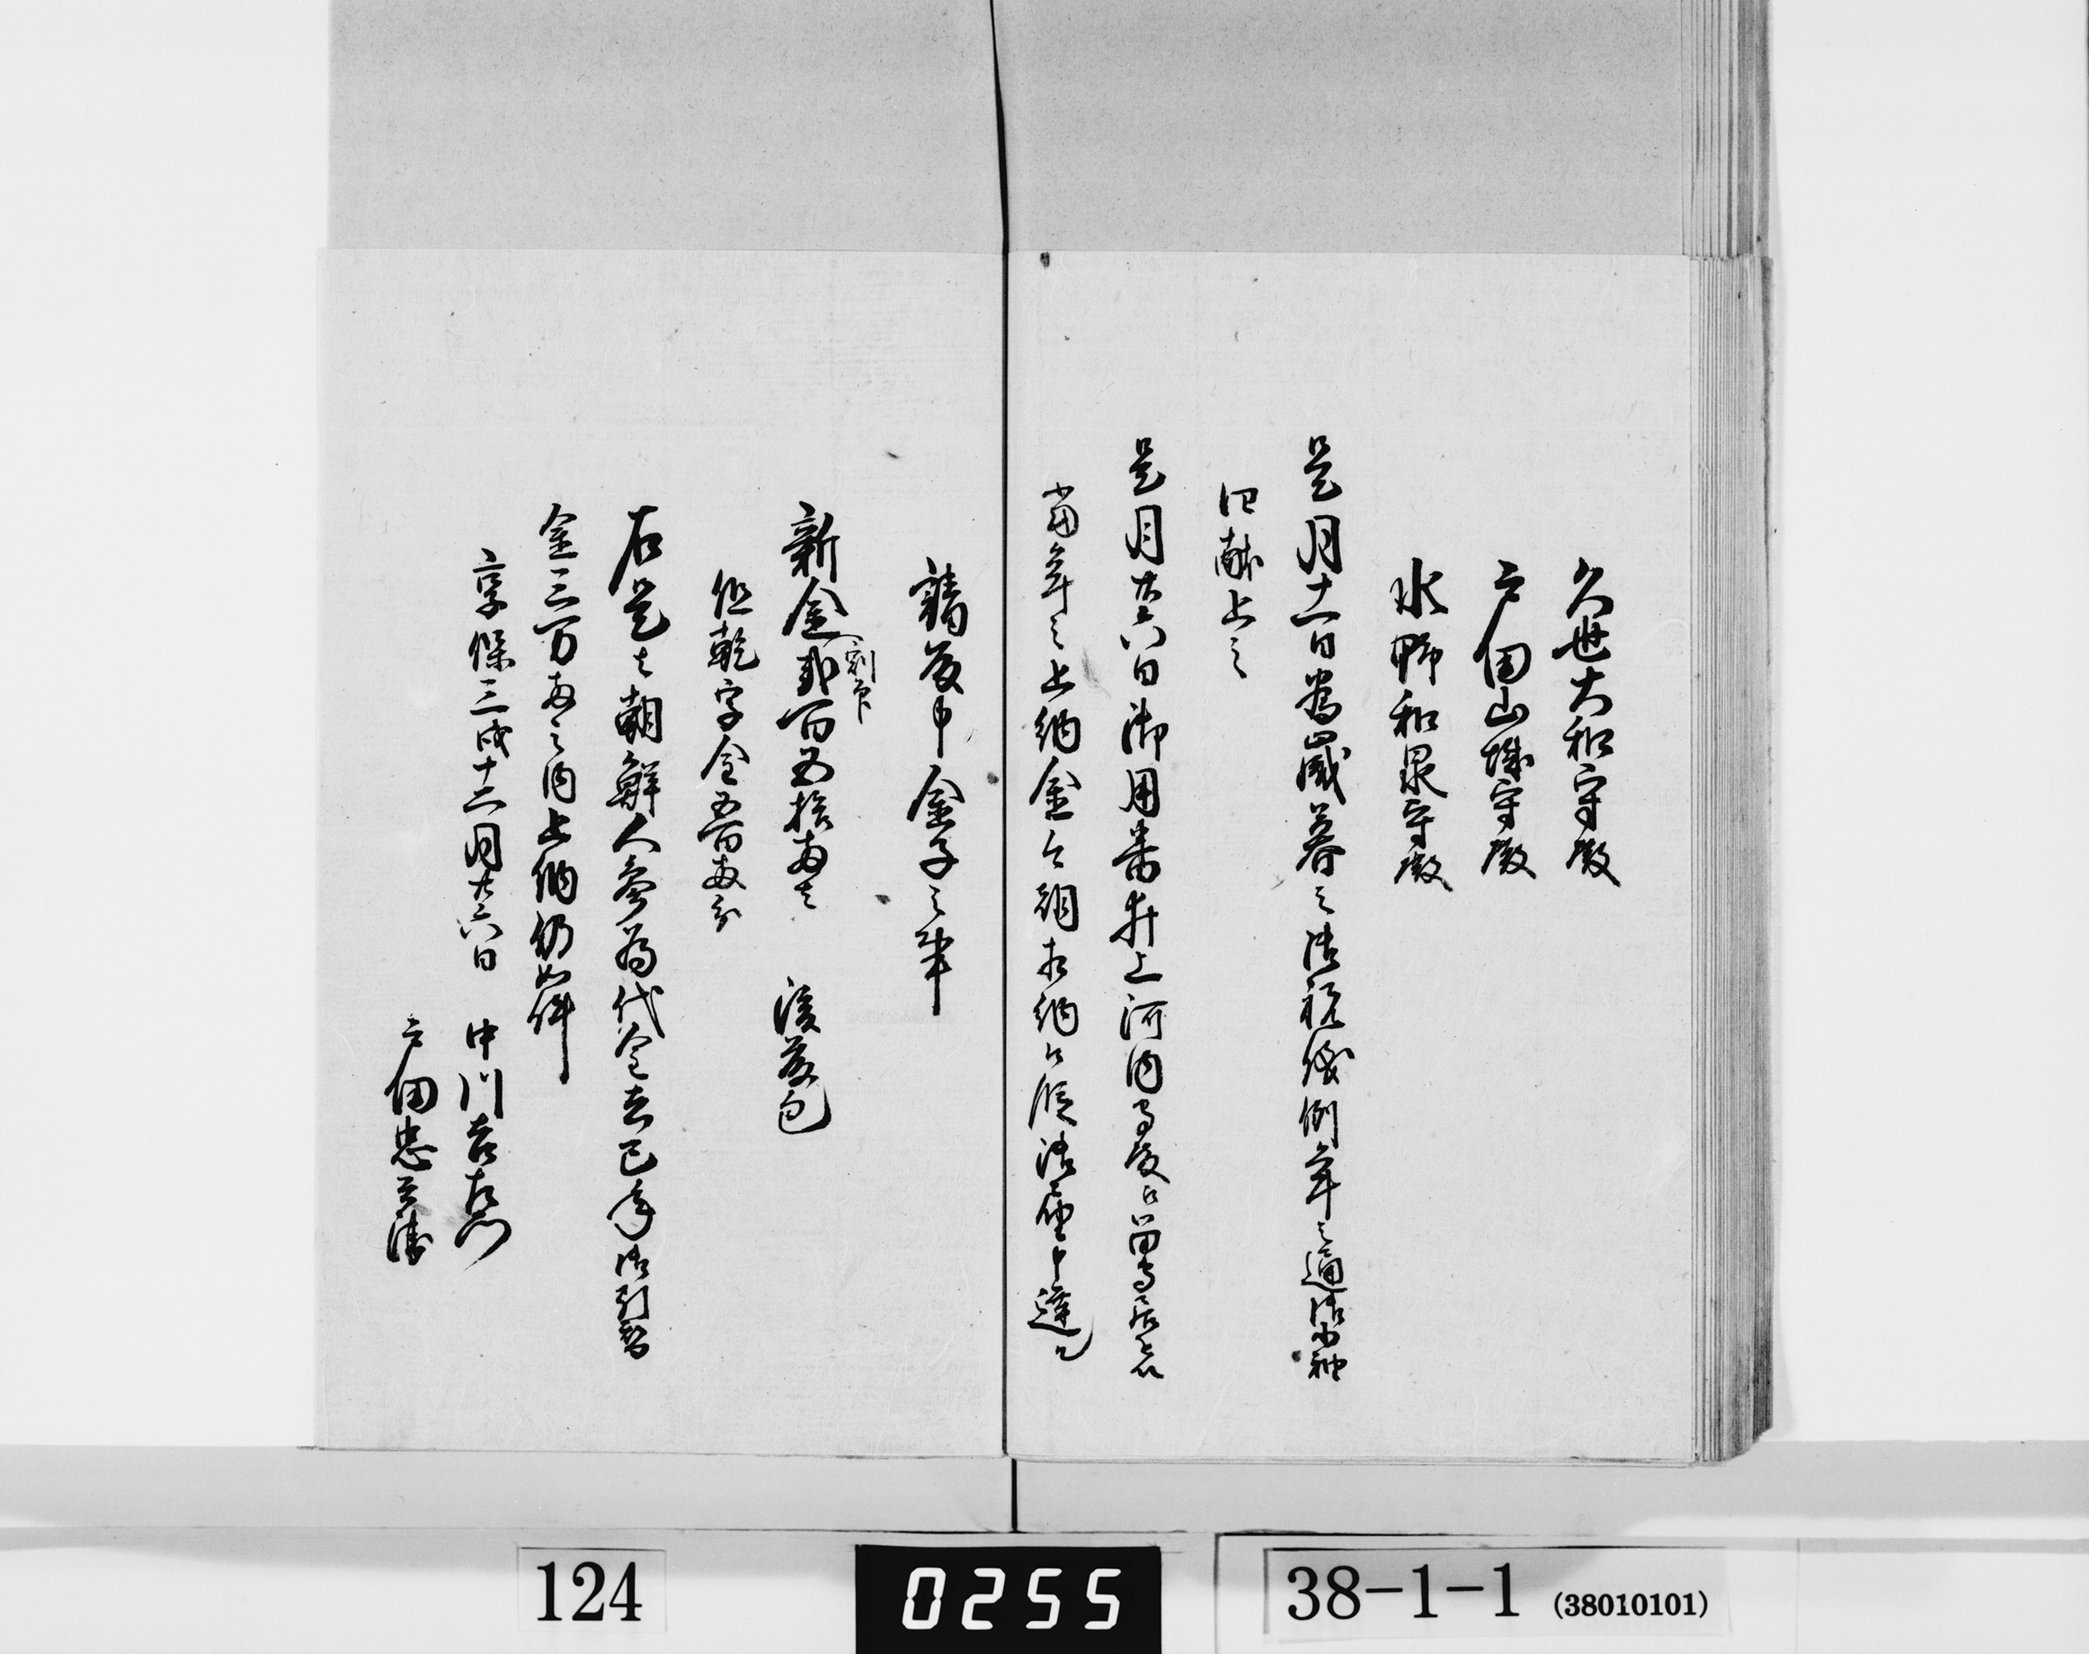 久世大和守殿
戸田山城守殿
水野和泉守殿
是月十一日為歳暮之御祝儀例年之通御小袖
四献上之
是月廿六日御用番井上河内守殿江留守居差出
当年之上納金今朝相納候段御届申達ス
請取申金子之事
新金弐百五拾両者 後藤包
割印
但乾字金五百両分
右是者朝鮮人参為代金去巳年御引替
金三万両之内上納仍如件
享保三戌十二月廿六日 中川吉左衛門
戸田忠兵衛
124
0255
38-1-1 (38010101)